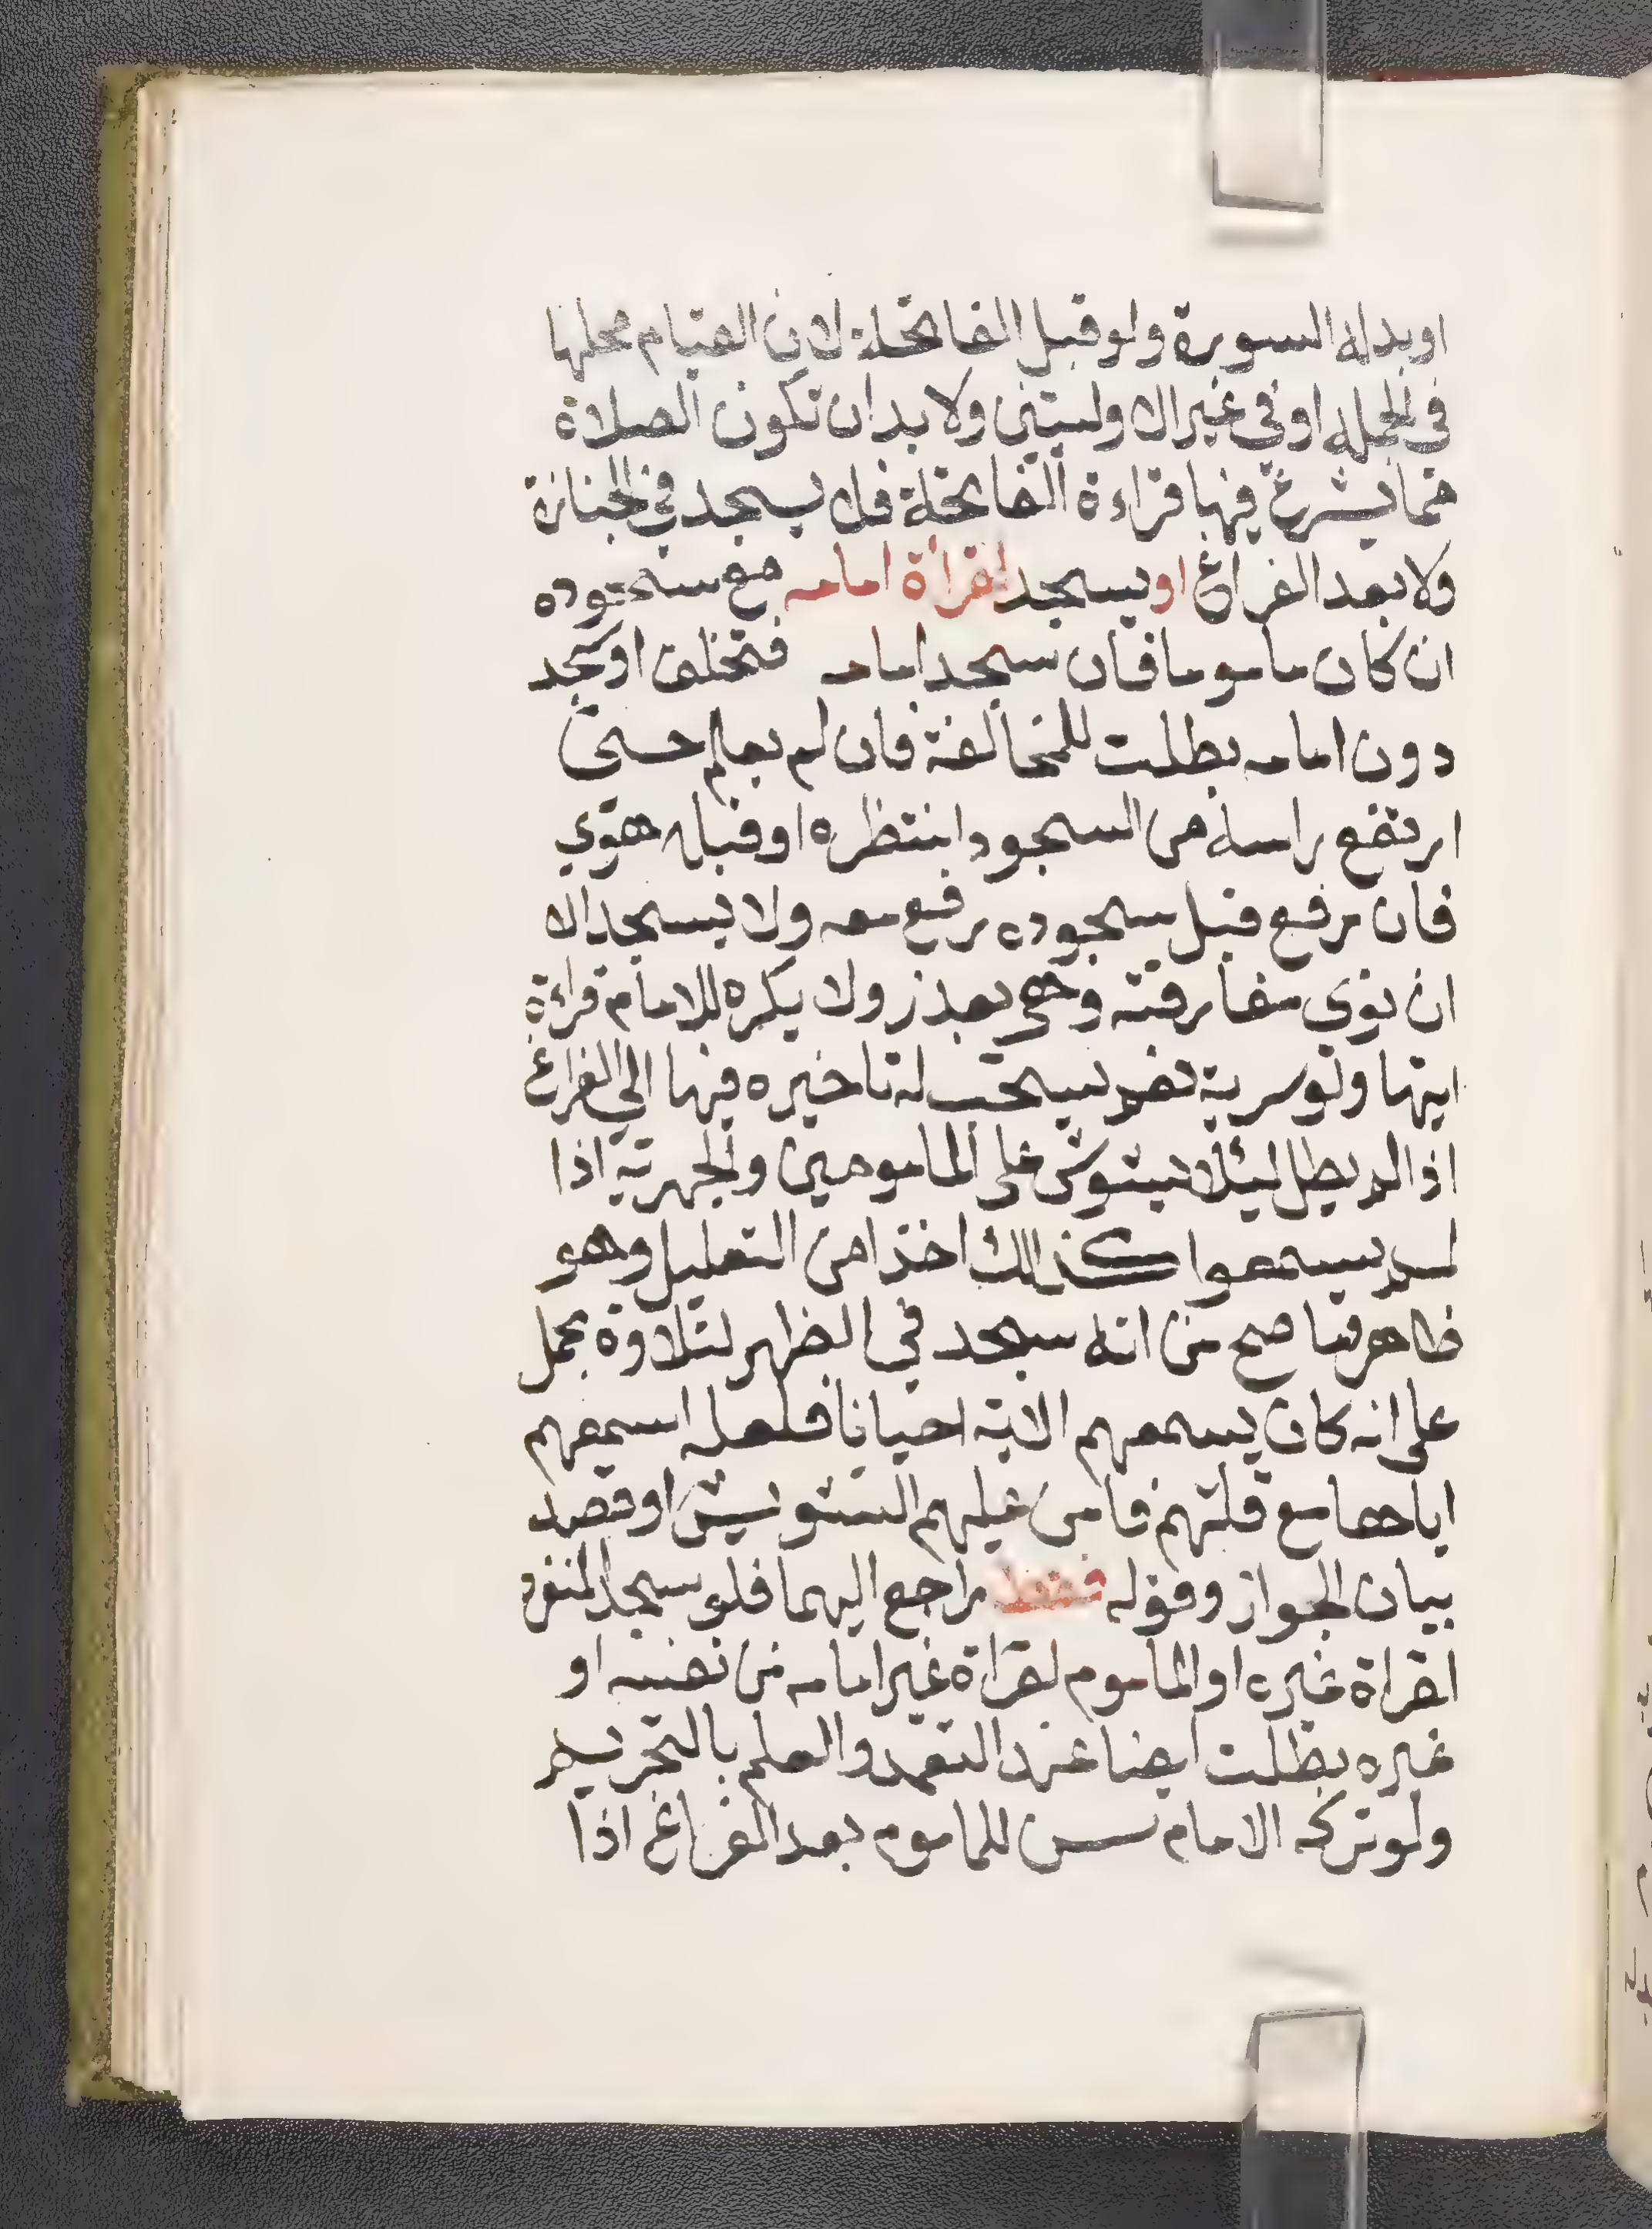 او بدله السورة ولو قبل الفاتحة لان القيام محلها
في الجملة او في غير الاولتين ولا بد ان تكون الصلاة
مما يشرع فيها قراءة الفاتحة فلا يسجد في الجنازة
ولا بعد الفراغ او يسجد لقرأة امامه مع سجوده
ان كان ماموما فان سجد امامه فتخلف او سجد
دون امامه بطلت للمخالفة فان لم يعلم حتى
ارتفع راسه من السجود انتظره او قبله هوي
فان رفع قبل سجوده رفع معه ولا يسجد الا
ان نوي مفارقته وهي بعذر ولا يكره للامام قراءة
ايتها ولو سرية نعم يستحب له تاخيره فيها الي الفراغ
اذا لم يطل ليئلا يشوش على المامومين والجهرية اذا
لم يسمعوا كذالك اخذا من التعليل وهو
ظاهر فما صح من انه سجد في الظهر لتلاوة يحمل
على انه كان يسمعهم الاية احيانا فلعله اسمعهم
اياها مع قلتهم فامن عليهم التشويش او قصد
بيان الجواز وقوله فقط راجع اليهما فلو سجد المنفرد
لقراة غيره او الماموم لقراة غير امامه من نفسه او
غيره بطلت ايضا عند التعمد والعلم بالتحريم
ولو تركه الامام سن للماموم بعد الفراغ اذا